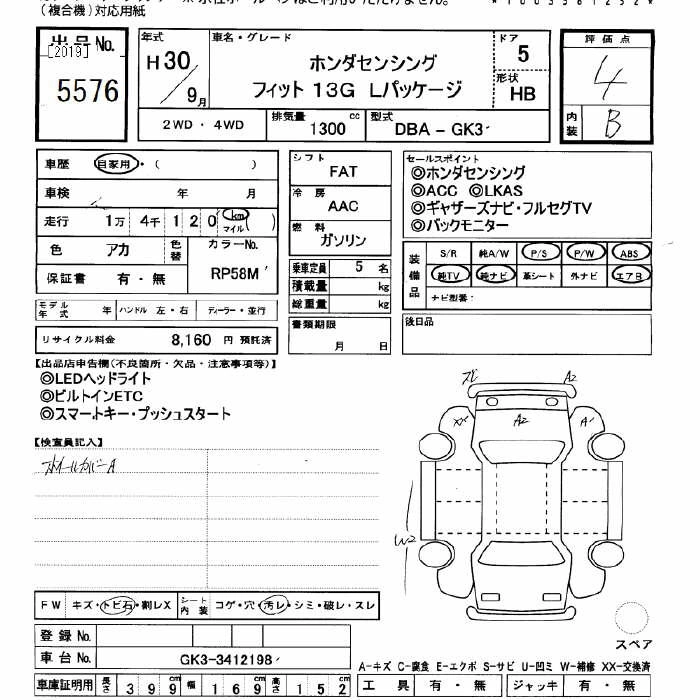 （複合機）対応用紙
出品No.
[2019]
5576
年式
H30/9月
車名・グレード
ホンダセンシング
フィット 13G Lパッケージ
ドア
5
形状
HB
2WD ・ 4WD
排気量 1300 cc
型式 DBA － GK3
評価点
4
内装
B
車歴 自家用・（ ）
車検 年 月
走行 1万 4千 1 2 0 km マイル（ ）
色 アカ 色替 カラーNo. RP58M
保証書 有・無
モデル年式 年 ハンドル 左・右 ディーラー・並行
リサイクル料金 8,160 円 預託済
シフト
FAT
冷房
AAC
燃料
ガソリン
乗車定員 5 名
積載量 kg
総重量 kg
書類期限
月 日
セールスポイント
◎ホンダセンシング
◎ACC ◎LKAS
◎ギャザーズナビ・フルセグTV
◎バックモニター
装備品
S/R 純A/W P/S P/W ABS
純TV 純ナビ 革シート 外ナビ エアB
ナビ型番：
後日品
【出品店申告欄(不良箇所・欠品・注意事項等)】
◎LEDヘッドライト
◎ビルトインETC
◎スマートキー・プッシュスタート
【検査員記入】
ホイールカバーA
A2
XX
A2
A1
W2
FW キズ・トビ石・割レX シート内装 コゲ・穴・汚レ・シミ・破レ・スレ
登録No.
車台No. GK3-3412198
車庫証明用 長さ 399 cm 幅 169 cm 高さ 152 cm
スペア
A-キズ C-腐食 E-エクボ S-サビ U-凹ミ W-補修 XX-交換済
工具 有・無 ジャッキ 有・無